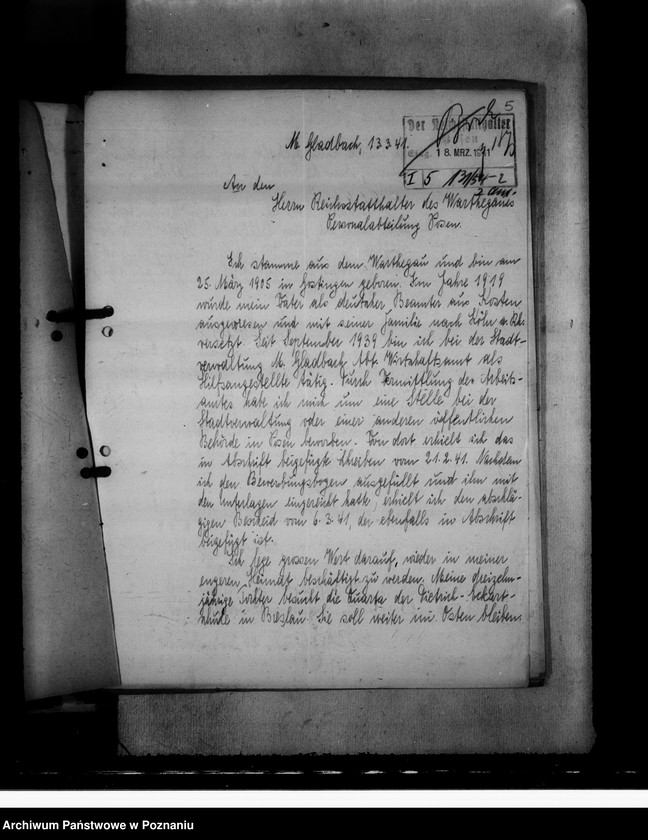 5
Der Reichsstatthalter
18. MRZ. 1941
I 5
M. Gladbach, 13.3.41.
An den
Herrn Reichsstatthalter des Warthegaues
Personalabteilung Posen.
Ich stamme aus dem Warthegau und bin am
25. März 1905 in Gostingen geboren. Im Jahre 1919
wurde mein Vater als deutscher Beamter aus Kosten
ausgewiesen und mit seiner Familie nach Köln a. Rh.
versetzt. Seit September 1939 bin ich bei der Stadt-
verwaltung M. Gladbach Abt. Wirtschaftsamt als
Hilfsangestellte tätig. Durch Vermittlung des Arbeits-
amtes habe ich mich um eine Stelle bei der
Stadtverwaltung oder einer anderen öffentlichen
Behörde in Posen beworben. Von dort erhielt ich das
in Abschrift beigefügte Schreiben vom 21.2.41. Nachdem
ich den Bewerbungsbogen ausgefüllt und ihn mit
den Unterlagen eingereicht hatte, erhielt ich den abschlä-
gigen Bescheid vom 6.3.41, der ebenfalls in Abschrift
beigefügt ist.
Ich lege grossen Wert darauf, wieder in meiner
engeren Heimat beschäftigt zu werden. Meine dreizehn-
jährige Tochter besucht die Quarta der Dietrich-Eckart-
schule in Breslau. Sie soll weiter im Osten bleiben.
Archiwum Państwowe w Poznaniu